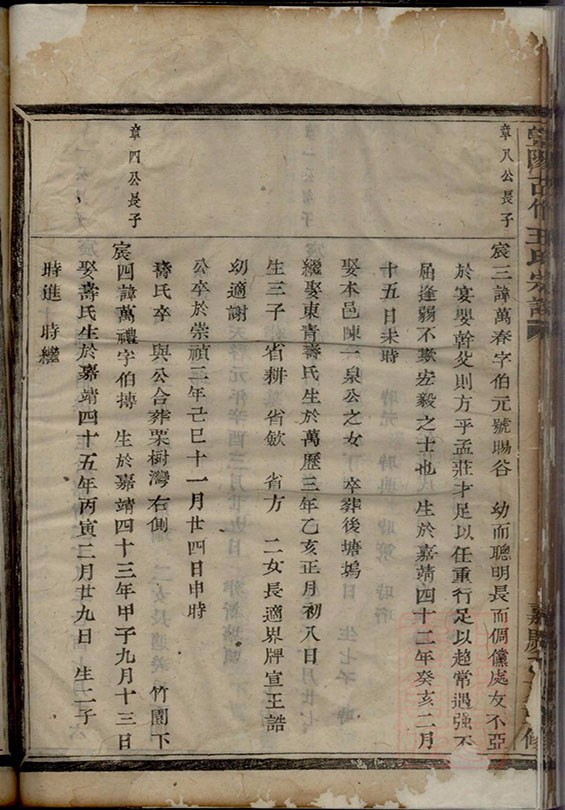 章八公長子
宸三諱萬春字伯元號暘谷 幼而聰明長而倜儻處友不亞
於宴嬰幹父則方乎孟莊才足以任重行足以超常遇強不
屈逢弱不欺宏毅之士也 生於嘉靖四十二年癸亥二月
十五日未時
娶本邑陳一泉公之女 卒葬後塘塢
繼娶東青壽氏生於萬歷三年乙亥正月初八日
生三子 省耕 省歛 省方 二女長適界牌宣王誥
幼適謝
公卒於崇禎三年己巳十一月廿四日申時
壽氏卒 與公合葬栗樹灣右側 竹園下
章四公長子
宸四諱萬禮字伯摶 生於嘉靖四十三年甲子九月十三日
娶壽氏生於嘉靖四十五年丙寅二月廿九日 生二子
時進 時繼